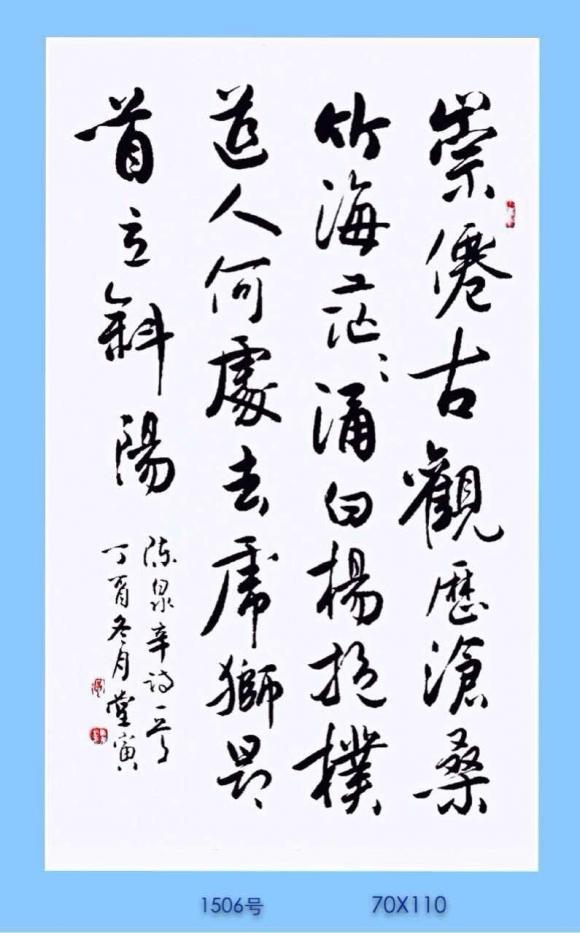 崇僊古觀歷滄桑
竹海茫茫涌白楊抱樸
道人何處去虎獅昂
首立斜陽
陈泉辛诗一首
丁酉冬月堂寅
1506号
70X110